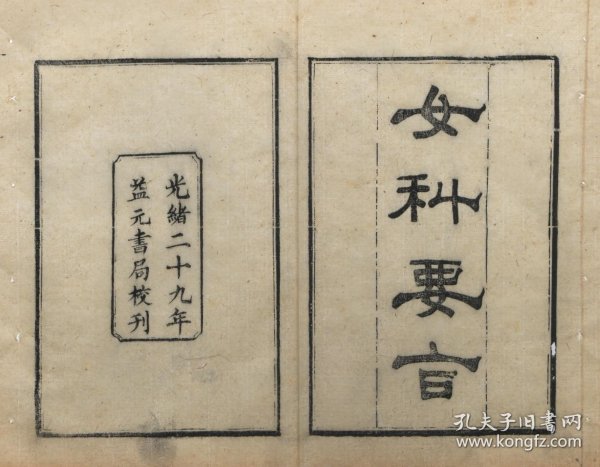 女科要言
光緒二十九年
益元書局校刊
孔夫子旧書网
www.kongfz.com